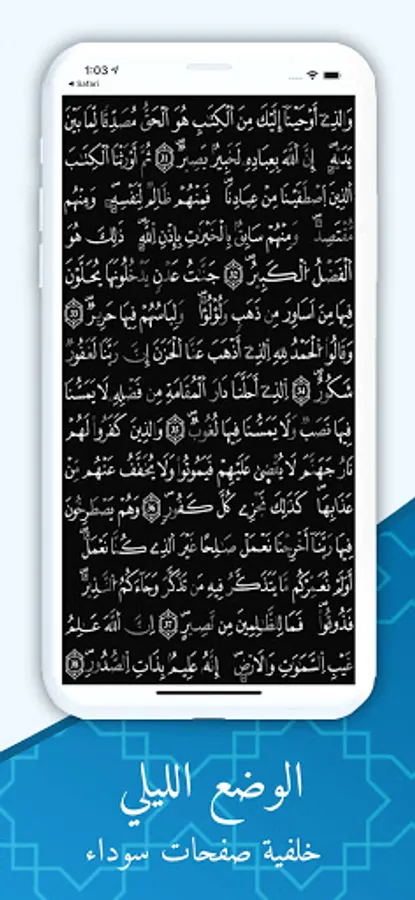 1:03
Safari
وَالَّذِي أَوْحَيْنَا إِلَيْكَ مِنَ الْكِتَابِ هُوَ الْحَقُّ مُصَدِّقًا لِمَا بَيْنَ
يَدَيْهِ إِنَّ اللَّهَ بِعِبَادِهِ لَخَبِيرٌ بَصِيرٌ ٣١ ثُمَّ أَوْرَثْنَا الْكِتَابَ
الَّذِينَ اصْطَفَيْنَا مِنْ عِبَادِنَا فَمِنْهُمْ ظَالِمٌ لِنَفْسِهِ وَمِنْهُمْ
مُقْتَصِدٌ وَمِنْهُمْ سَابِقٌ بِالْخَيْرَاتِ بِإِذْنِ اللَّهِ ذَلِكَ هُوَ
الْفَضْلُ الْكَبِيرُ ٣٢ جَنَّاتُ عَدْنٍ يَدْخُلُونَهَا يُحَلَّوْنَ
فِيهَا مِنْ أَسَاوِرَ مِنْ ذَهَبٍ وَلُؤْلُؤًا وَلِبَاسُهُمْ فِيهَا حَرِيرٌ ٣٣
وَقَالُوا الْحَمْدُ لِلَّهِ الَّذِي أَذْهَبَ عَنَّا الْحَزَنَ إِنَّ رَبَّنَا لَغَفُورٌ
شَكُورٌ ٣٤ الَّذِي أَحَلَّنَا دَارَ الْمُقَامَةِ مِنْ فَضْلِهِ لَا يَمَسُّنَا
فِيهَا نَصَبٌ وَلَا يَمَسُّنَا فِيهَا لُغُوبٌ ٣٥ وَالَّذِينَ كَفَرُوا لَهُمْ
نَارُ جَهَنَّمَ لَا يُقْضَى عَلَيْهِمْ فَيَمُوتُوا وَلَا يُخَفَّفُ عَنْهُمْ مِنْ
عَذَابِهَا كَذَلِكَ نَجْزِي كُلَّ كَفُورٍ ٣٦ وَهُمْ يَصْطَرِخُونَ
فِيهَا رَبَّنَا أَخْرِجْنَا نَعْمَلْ صَالِحًا غَيْرَ الَّذِي كُنَّا نَعْمَلُ
أَوَلَمْ نُعَمِّرْكُمْ مَا يَتَذَكَّرُ فِيهِ مَنْ تَذَكَّرَ وَجَاءَكُمُ النَّذِيرُ
فَذُوقُوا فَمَا لِلظَّالِمِينَ مِنْ نَصِيرٍ ٣٧ إِنَّ اللَّهَ عَالِمُ
غَيْبِ السَّمَاوَاتِ وَالْأَرْضِ إِنَّهُ عَلِيمٌ بِذَاتِ الصُّدُورِ ٣٨
الوضع الليلي
خلفية صفحات سوداء